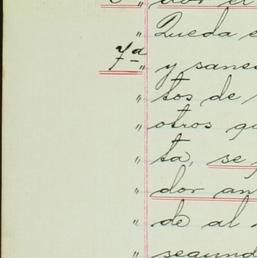 " dor el
" Queda e
7ª " y sanea
" tos de
" otros qu
" ta, se
" dor an
" de al
" segund